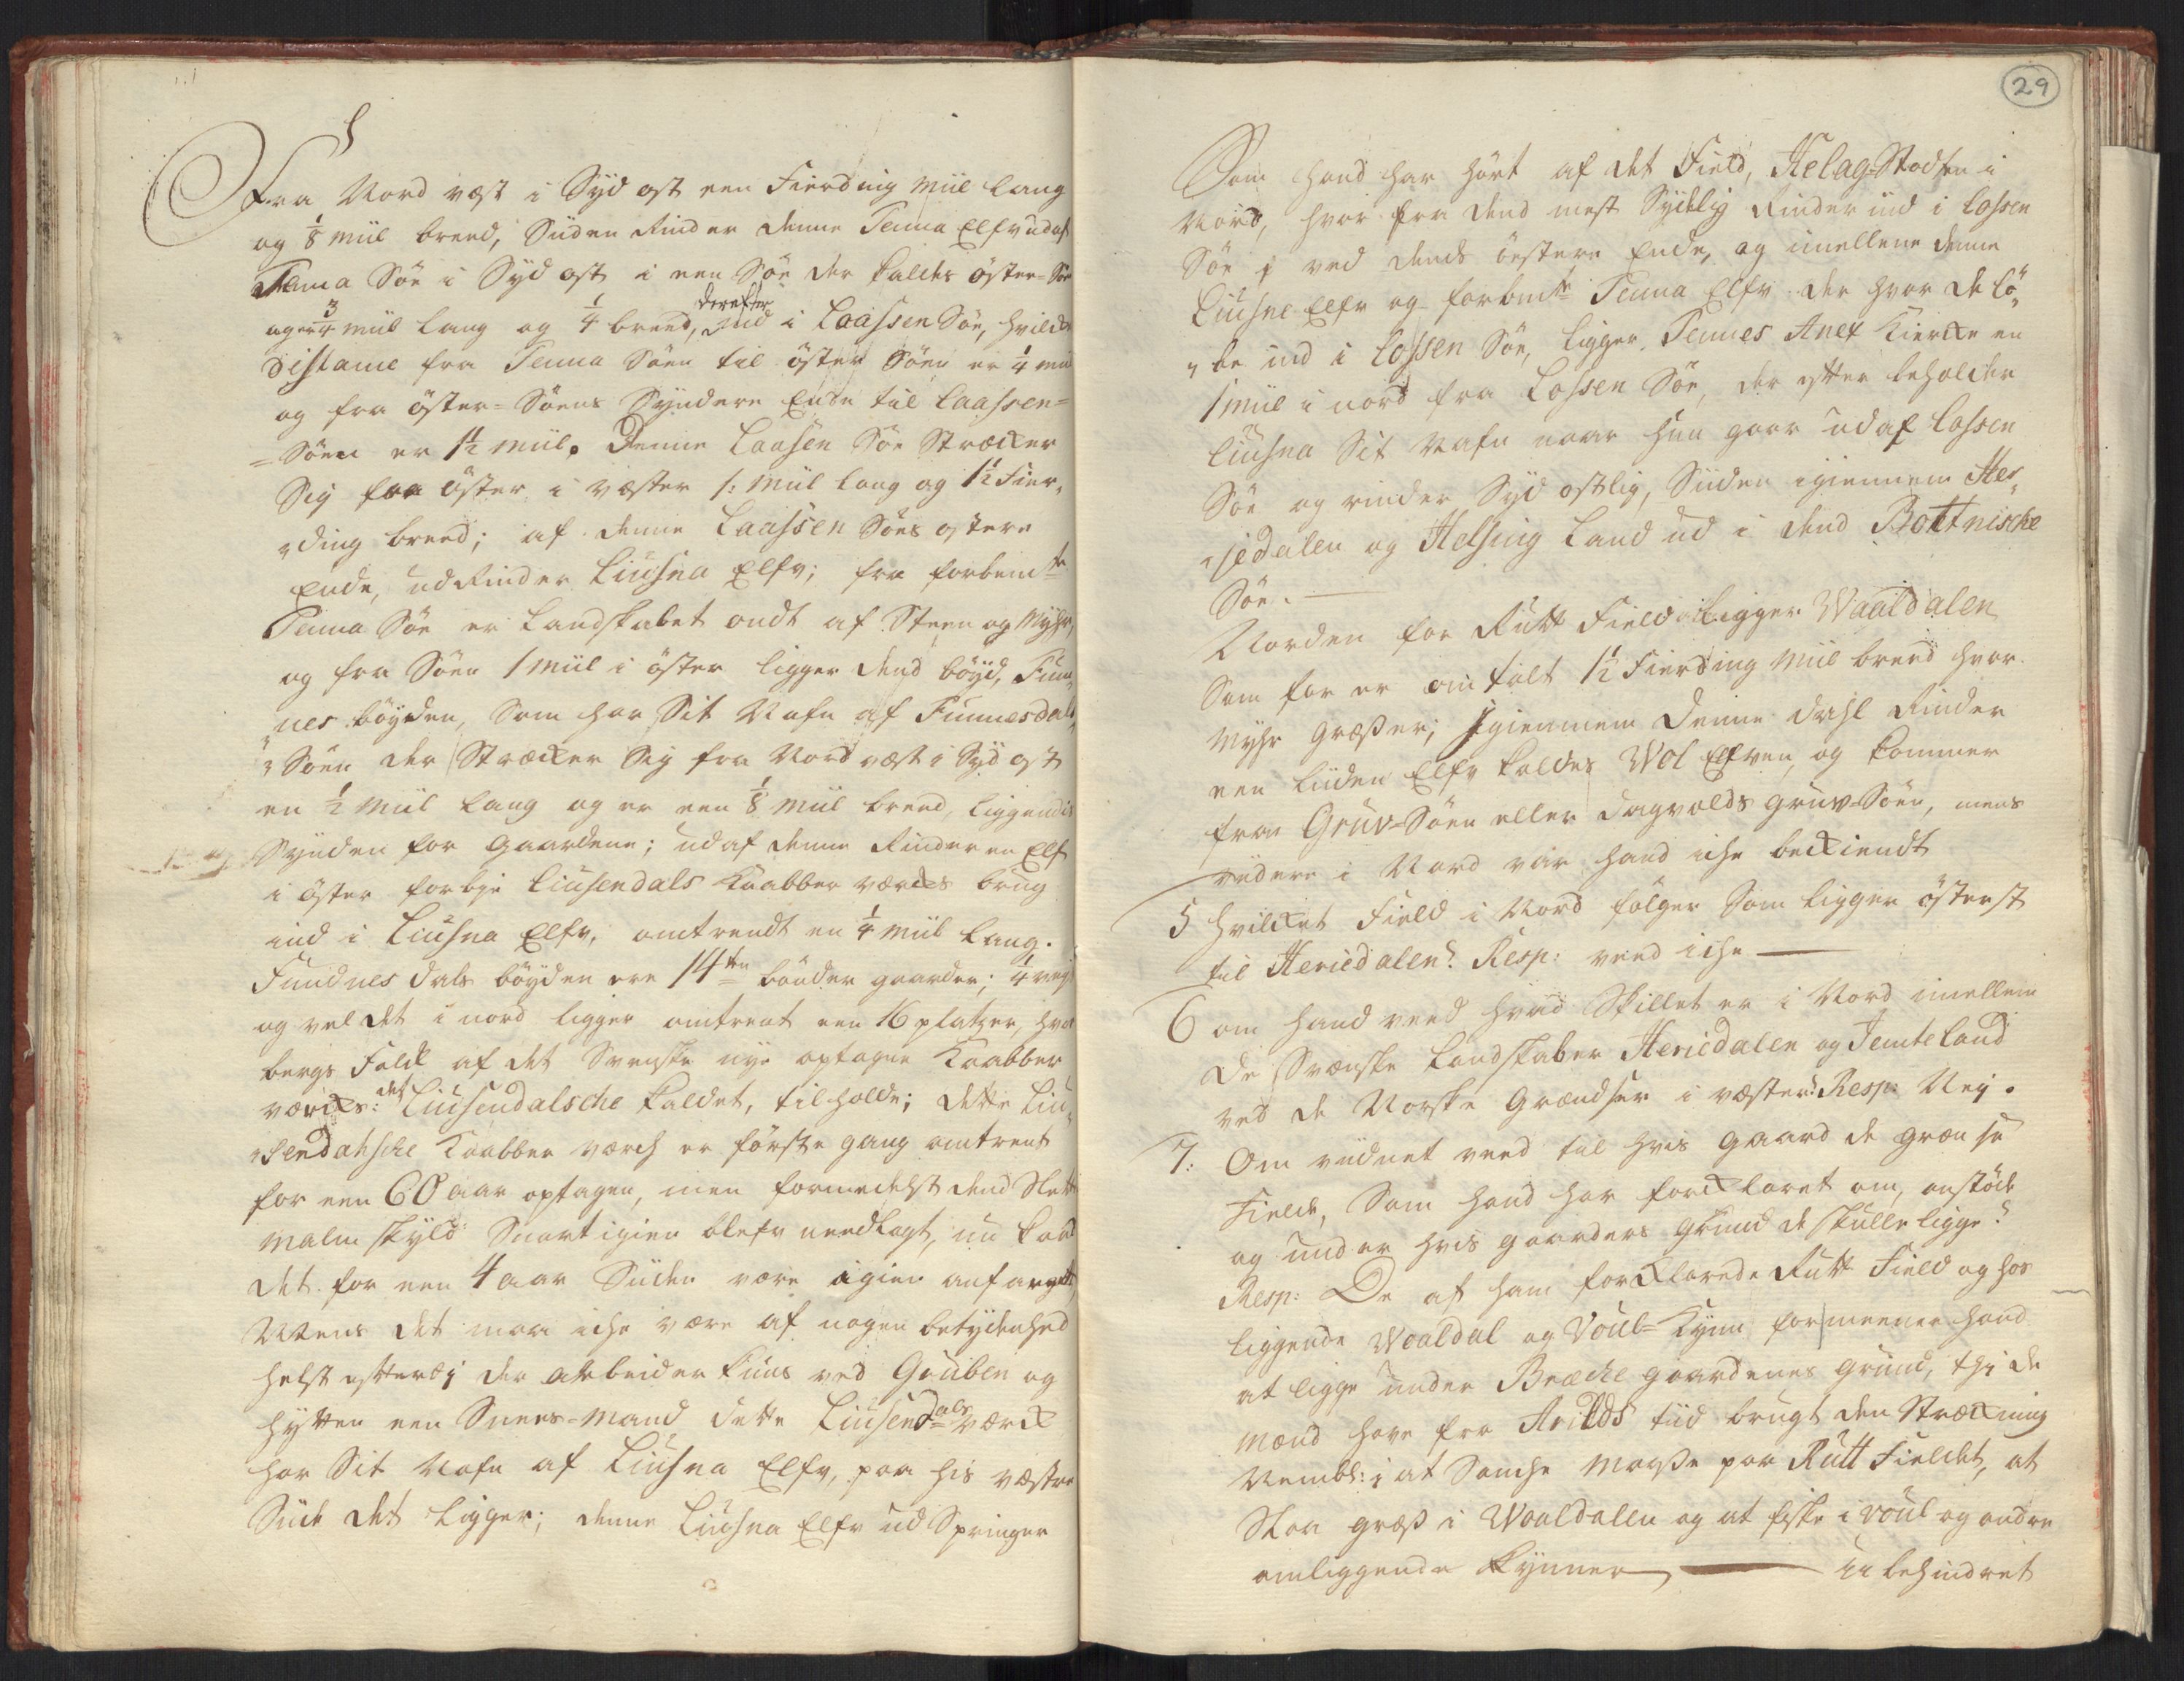 29
Fra Nord væst i Syd ost een Fierding Miil lang
og 1/8 Miil breed, Siiden Rinder denne Tenna Elfv ud af
Tenna Söe i Syd ost i een Söe der kaldes öster-Söe
er 3/4 Miil lang og 1/4 breed, derefter ind i Laassen Söe, hvilcken
Distance fra Tenna Söen til öster Söen er 1/4 miil
og fra öster-Söens Syndere Ende til Laassen=
=Söen er 1 1/2 Miil. Denne Laasen Söe Stræcker
Sig fra öster i væster 1: Miil lang og 1 1/2 Fier,,
,,ding breed; af denne Laassen Söes ostere
Ende, ud Rinder Liusna Elfv; fra forbem.te
Tenna Söe er Landskabet ondt af Steen og Myhr,
og fra Söen 1 Miil i öster ligger dend böyd, Fun,,
,,nes böyden, Som har Sit Nafn af Funnesdals,,
,,Söen der Stræcker Sig fra Nord væst i Syd ost
en 1/2 Miil lang og er een 1/8 Miil breed, liggendis
Synden for Gaardene; ud af denne Rinder en Elf
i öster forbje Liusendals Kaabber værcks brug
ind i Liusna Elfv, omtrendt en 1/4 Miil lang.
Fundnes dals böyden ere 14ten bönder gaarder; 1/4 vej
og vel det i nord ligger omtrent een 16 platzer, hvor
bergs Folck af det Svenske nye optagne Kaabber
værcks: det Liusendalsche kaldet, tilholde; dette Liu,,
,,sendahlsche Kaabber værch er förste gang omtrent
for een 60 aar optagen, men formedelst dend Slette
Malm skyld Snart igien blefv needlagt, nu kand
det for een 4 aar Siiden være igien anfanget,
Mens det maa iche være af nogen betydenhed
helst efterdj der arbeider kuns ved Gruben og
hytten een Snees-Mand, dette Liusend als værck
har Sit Nafn af Liusna Elfv, paa his væstre
Siide det ligger; denne Liusna Elfv ud Springer
Som hand har hört af det Field, Helag-Stodten i
Nord, hvor fra dend mest Sydlig Rinder ind i Lossen
Söe i ved dends östere Ende, og imellem denne
Liusne Elfv og forbem.te Tenna Elfv der hvor de lö,,
,,be ind i Lossen Söe, ligger Tennes Anex Kiercke en
1 Miil i nord fra Lossen Söe, der efter beholder
Liusna Sit Nafn naar hun gaar ud af Lossen
Söe og rinder Syd ostlig, Siiden igiennem Her,,
,,jedalen og Helsing Land ud i dend Bottnische
Söe.
Norden for Rutt Field Ligger Waaldalen
Som for er om talt 1 1/2 Fierding Miil breed hvor
Myhr Græsser; Igiennem denne dahl Rinder
een liiden Elfv kaldes Wol Elfven, og kommer
fra Gruv-Söen eller Dagvolds Gruv-Söen, mens
viidere i Nord var hand iche beckiendt
5 Hvilcket Field i Nord fölger Som ligger österst
til Heriedalen? Resp: veed iche
6 om hand veed hvad Skillet er i Nord imellem
de Svenske Landskaber Heriedalen og Jemteland
ved de Norske Grændser i væster? Resp: Nej.
7: Om viidnet veed til hvis Gaard de grænse
Fielde, Som hand har forcklaret om, anstöde
og under hvis gaarders Grund de skulle ligge?
Resp: De af ham forcklarede Rutt Field og hos
liggende Woaldal og Voul-Kynn formeener hand
at ligge under Bræche gaardenes Grund, thj de
Mænd have fra Arilds tiid brugt den Stræckning
Nembl: i at Sanche Maasse paa Rutt Fieldet, at
Slaa græs i Woaldalen og at fiske i voul og andre
omliggende Kynner, ubehindret